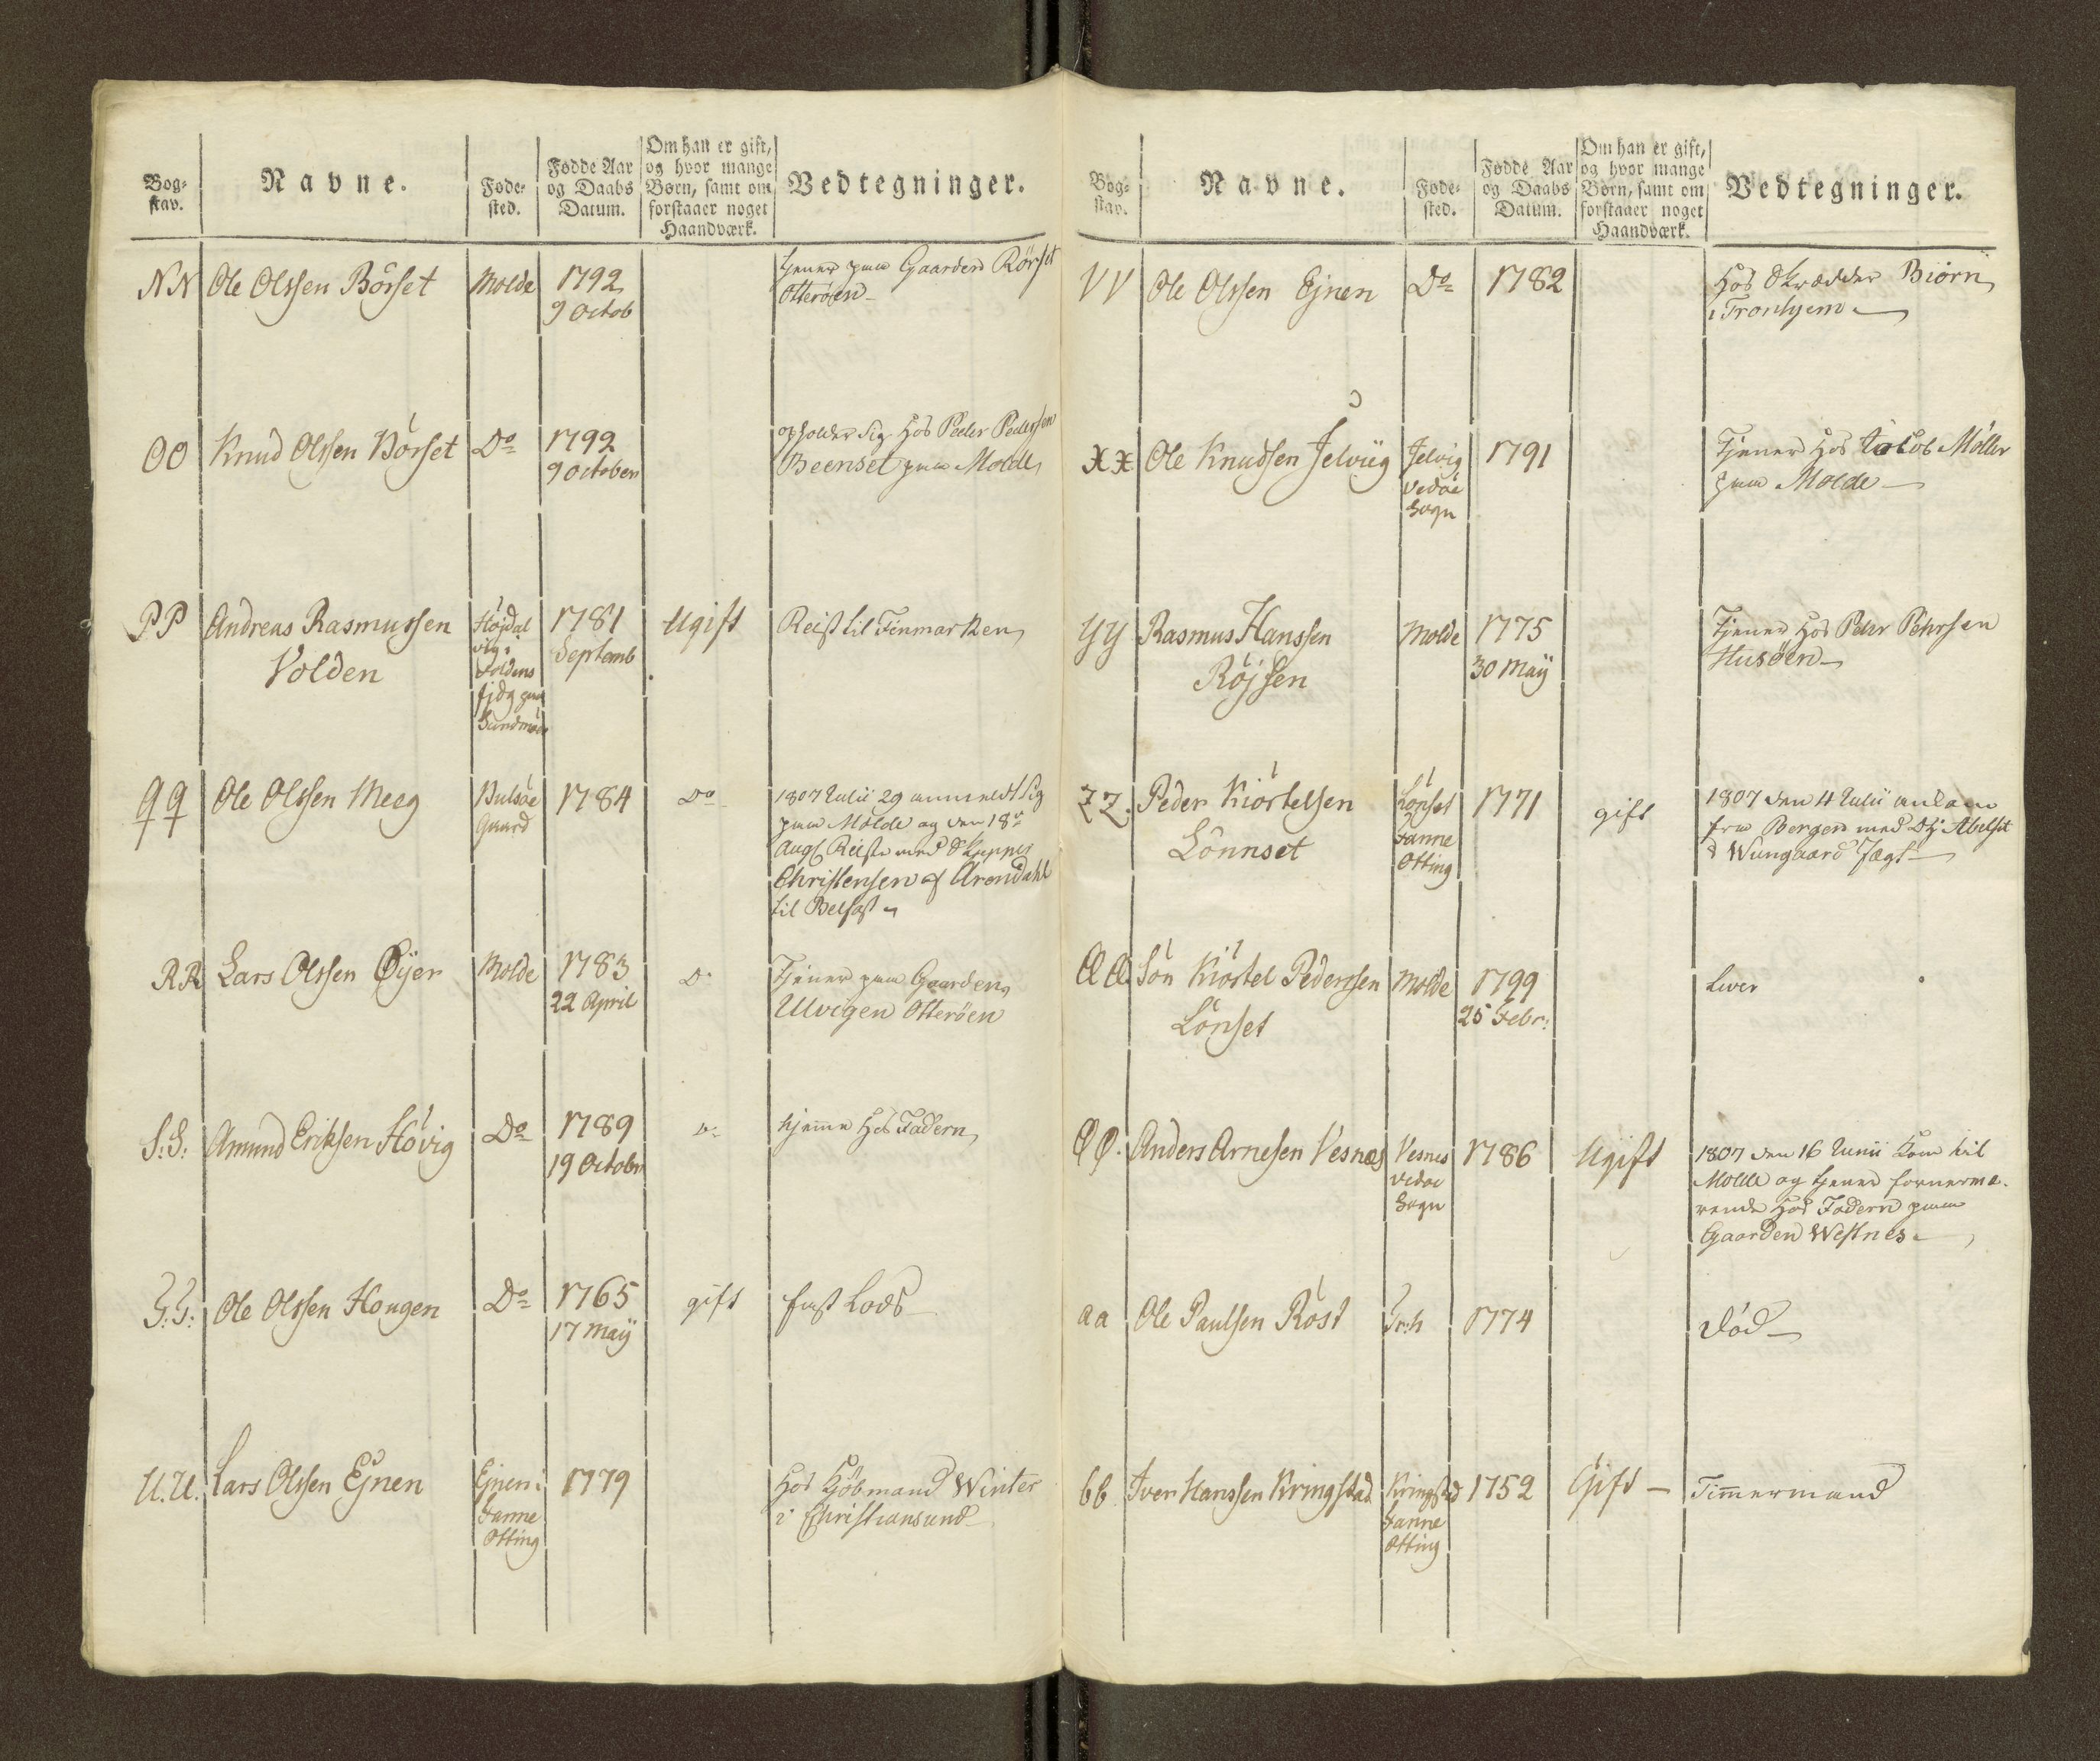 Bog-
stav.
Navne.
Føde-
sted.
Fødde Aar
og Daabs
Datum.
Om han er gift,
og hvor mange
Børn, samt om
forstaaer noget
Haandværk.
Vedtegninger.
NN Ole Olssen Börset Molde 1792
9 Octob
tjener paa Gaarden Rörset
Otteröen
OO Knud Olssen Börset Do 1792
9 October
opholder sig hos Peder Pederssen
Beenset paa Molde
PP Andreas Rasmussen
Volden
1781
Septemb
Ugift
Reist til Finmarken
QQ Ole Olssen Meeg
Bulsöe
Gaard
1784 Do
1807 Julii 29 anmeldt sig
paa Molde og den 18de
Augt Reiste med Skipper
Christensen af Arendahl
til Belfast
RR Lars Olssen Öijer Molde 1783
22 April
Do
Tjener paa Gaarden
Ulvigen Otteröen
S:S: Amund Eriksen Hövig Do 1789
19 October
Do
hjemme hos Faderen
T:T: Ole Olssen Hougen Do 1765
17 Maij
gift
fast Lods
U.U. Lars Olssen Ejnen
Ejnen i
Fanne
Otting
1779
Hos Kjöbmand Winter
i Christiansund
Bog-
stav.
Navne.
Føde-
sted.
Fødde Aar
og Daabs
Datum.
Om han er gift,
og hvor mange
Børn, samt om
forstaaer noget
Haandværk.
Vedtegninger.
VV Ole Olssen Ejnen Do 1782
Hos Skrædder Biörn
i Tronhjem
XX Ole Knudsen Jelviig
Jelvig
Vedöe
Sogn
1791
Tjener hos Jacob Möller
paa Molde
YY Rasmus Hanssen
Röjssen
Molde 1775
30 Maij
Tjener hos Peder Pehrsen
Husöen
ZZ. Peder Kiörtelsen
Lönnset
Lönset
Fanne
Otting
1771 gift
1807 den 4 Julii ankom
fra Bergen med
Wungaard Jægt
ÆÆ. Sön Kiörtel Pederssen
Lönset
Molde 1799
25 Febr:
Lever
ØØ. Anders Arnesen Vesnæs
Vesnes
Vedöe
Sogn
1786 Ugift
1807 den 16 Junii kom til
Molde og tjener fornærvæ-
rende hos Faderen paa
Gaarden Westnes
aa Ole Paulsen Röst Tr:h 1774
död
bb Iver Hanssen Kringstad
Kringstad
Fanne
Otting
1752 Gift
Timmermand